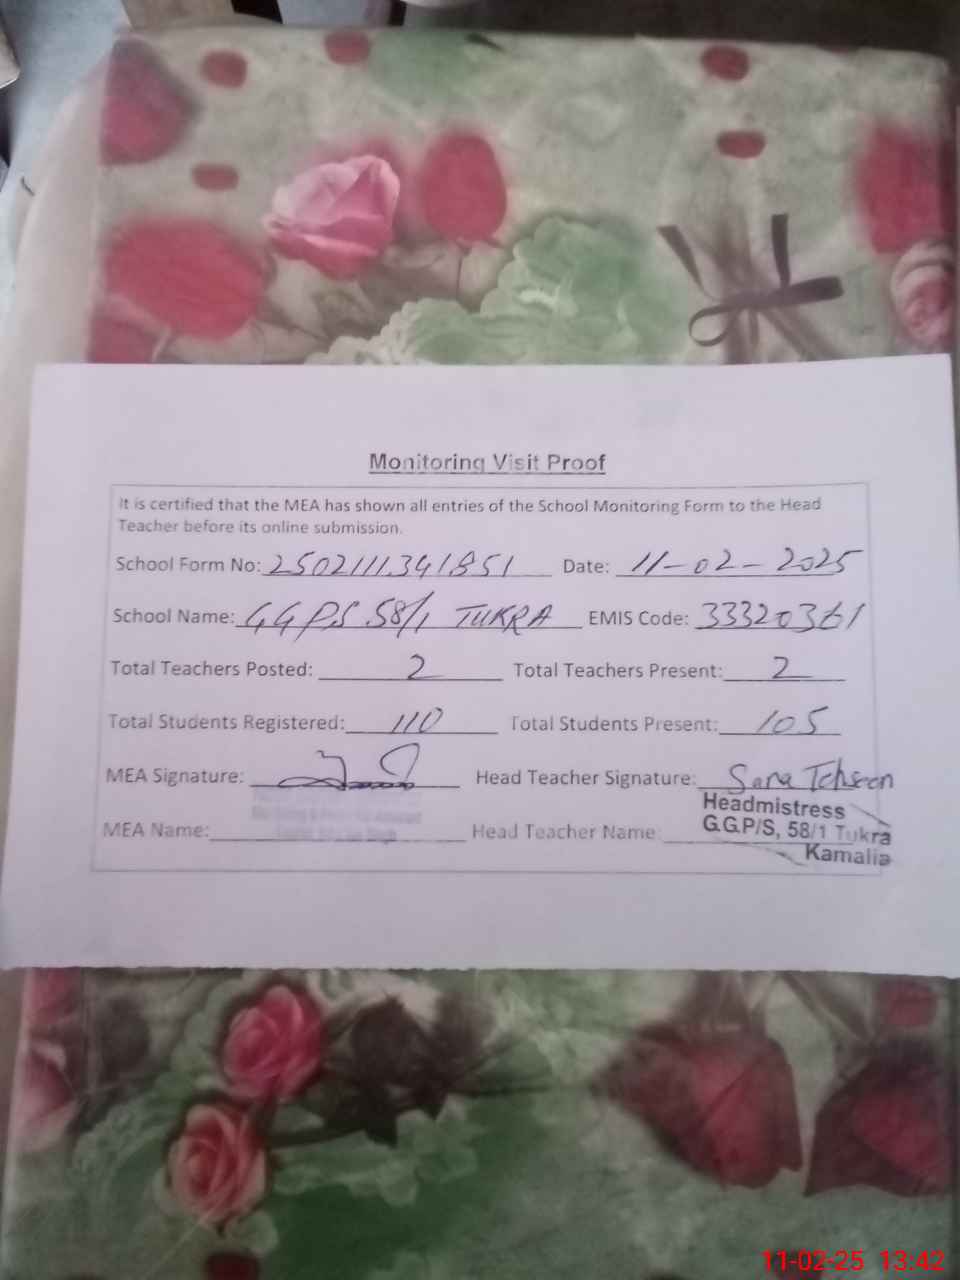 Monitoring Visit Proof
It is certified that the MEA has shown all entries of the School Monitoring Form to the Head
Teacher before its online submission.
School Form No: 2502111341851 Date: 11-02-2025
School Name: GGPS 58/1 TUKRA EMIS Code: 33320361
Total Teachers Posted: 2 Total Teachers Present: 2
Total Students Registered: 110 Total Students Present: 105
MEA Signature: Head Teacher Signature: Sana Tehseen
MEA Name: Head Teacher Name:
Headmistress
G.G.P/S, 58/1 Tukra
Kamalia
11-02-25 13:42